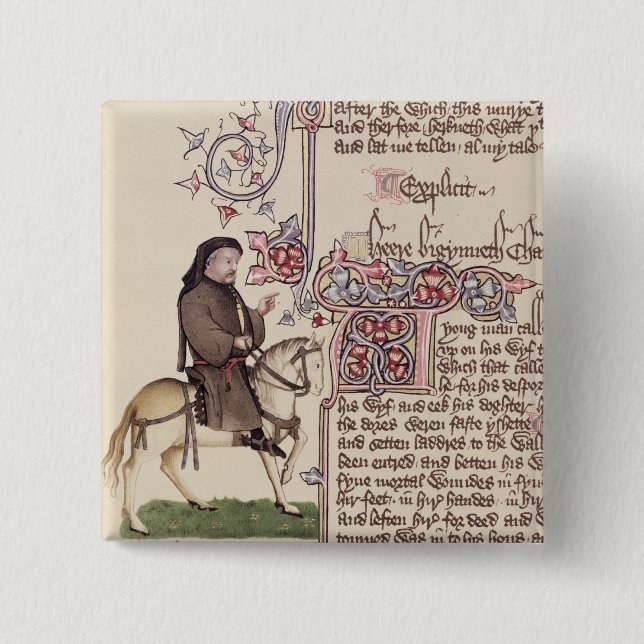 after the which this murye t
and therfore herkneth what y
and lat me tellen al my tale
Explicit
Heere bigynneth Cha
young man calle
up on his wyf t
which that calle
he for his despor
his wyf and eek his doghter h
the dores weren faste yshette
and setten laddres to the wal
been entred and betten his w
fyue mortal woundes in fyu
hir feet in hir handes in hir
and leften hir for deed and w
torned was in to his hous an